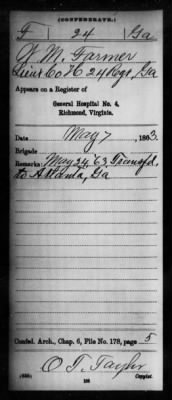 (CONFEDERATE.)
F 24 Ga
J. M. Farmer
Lieut Co H 24 Regt, Ga
Appears on a Register of
General Hospital No. 4,
Richmond, Virginia.
Date May 7, 1863.
Brigade
Remarks: May 24 '63 Transfd.
to Atlanta, Ga
Confed. Arch., Chap. 6, File No. 178, page 5
O. T. Taylor
Copyist.